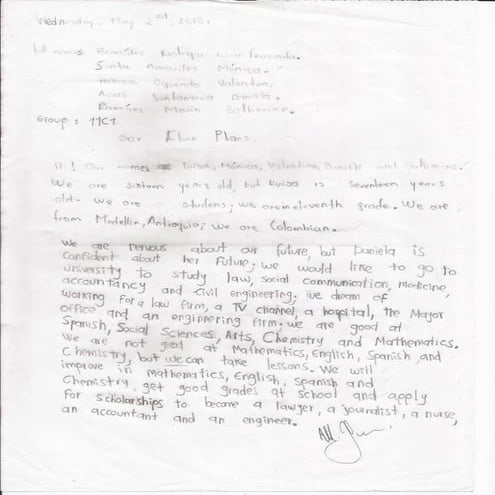 Wednesday, May 2nd, 2018.
Full names Benítez Restrepo Luisa Fernanda.
Mónica.
Valentina.
Arias Santamaría Daniela.
Ramírez Marín Catherine.
Group: 11C1
Our Future Plans.
Hi! Our names are Luisa, Mónica, Valentina, Daniela and Catherine.
We are sixteen years old, but Luisa is seventeen years
old. We are students; we are in eleventh grade. We are
from Medellín, Antioquia; we are Colombian.
We are nervous about our future, but Daniela is
confident about her future; we would like to go to
university to study law, social communication, medicine,
accountancy and civil engineering; we dream of
working for a law firm, a TV channel, a hospital, the Mayor
office and an enginnering firm; we are good at
Spanish, Social Sciences, Arts, Chemistry and Mathematics.
We are not good at Mathematics, English, Spanish and
Chemistry, but we can take lessons. We will
improve in mathematics, English, Spanish and
Chemistry, get good grades at school and apply
for scholarships to become a lawyer, a journalist, a nurse,
an accountant and an engineer.